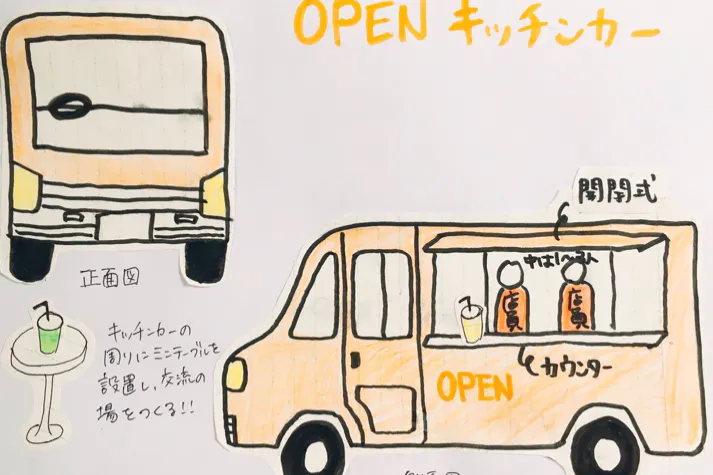 OPEN キッチンカー
開閉式
中は1〜2人
店員
店員
カウンター
OPEN
正面図
キッチンカーの
周りにミニテーブルを
設置し、交流の
場をつくる!!